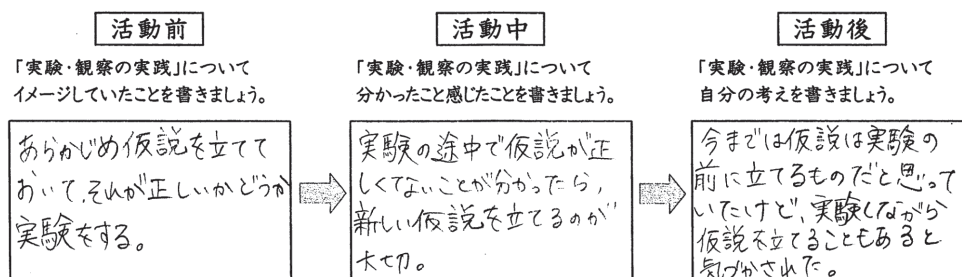 活動前
「実験・観察の実践」について
イメージしていたことを書きましょう。
あらかじめ仮説を立てて
おいて、それが正しいかどうか
実験をする。
活動中
「実験・観察の実践」について
分かったこと感じたことを書きましょう。
実験の途中で仮説が正
しくないことが分かったら、
新しい仮説を立てるのが
大切。
活動後
「実験・観察の実践」について
自分の考えを書きましょう。
今までは仮説は実験の
前に立てるものだと思って
いたけど、実験しながら
仮説を立てることもあると
気づかされた。